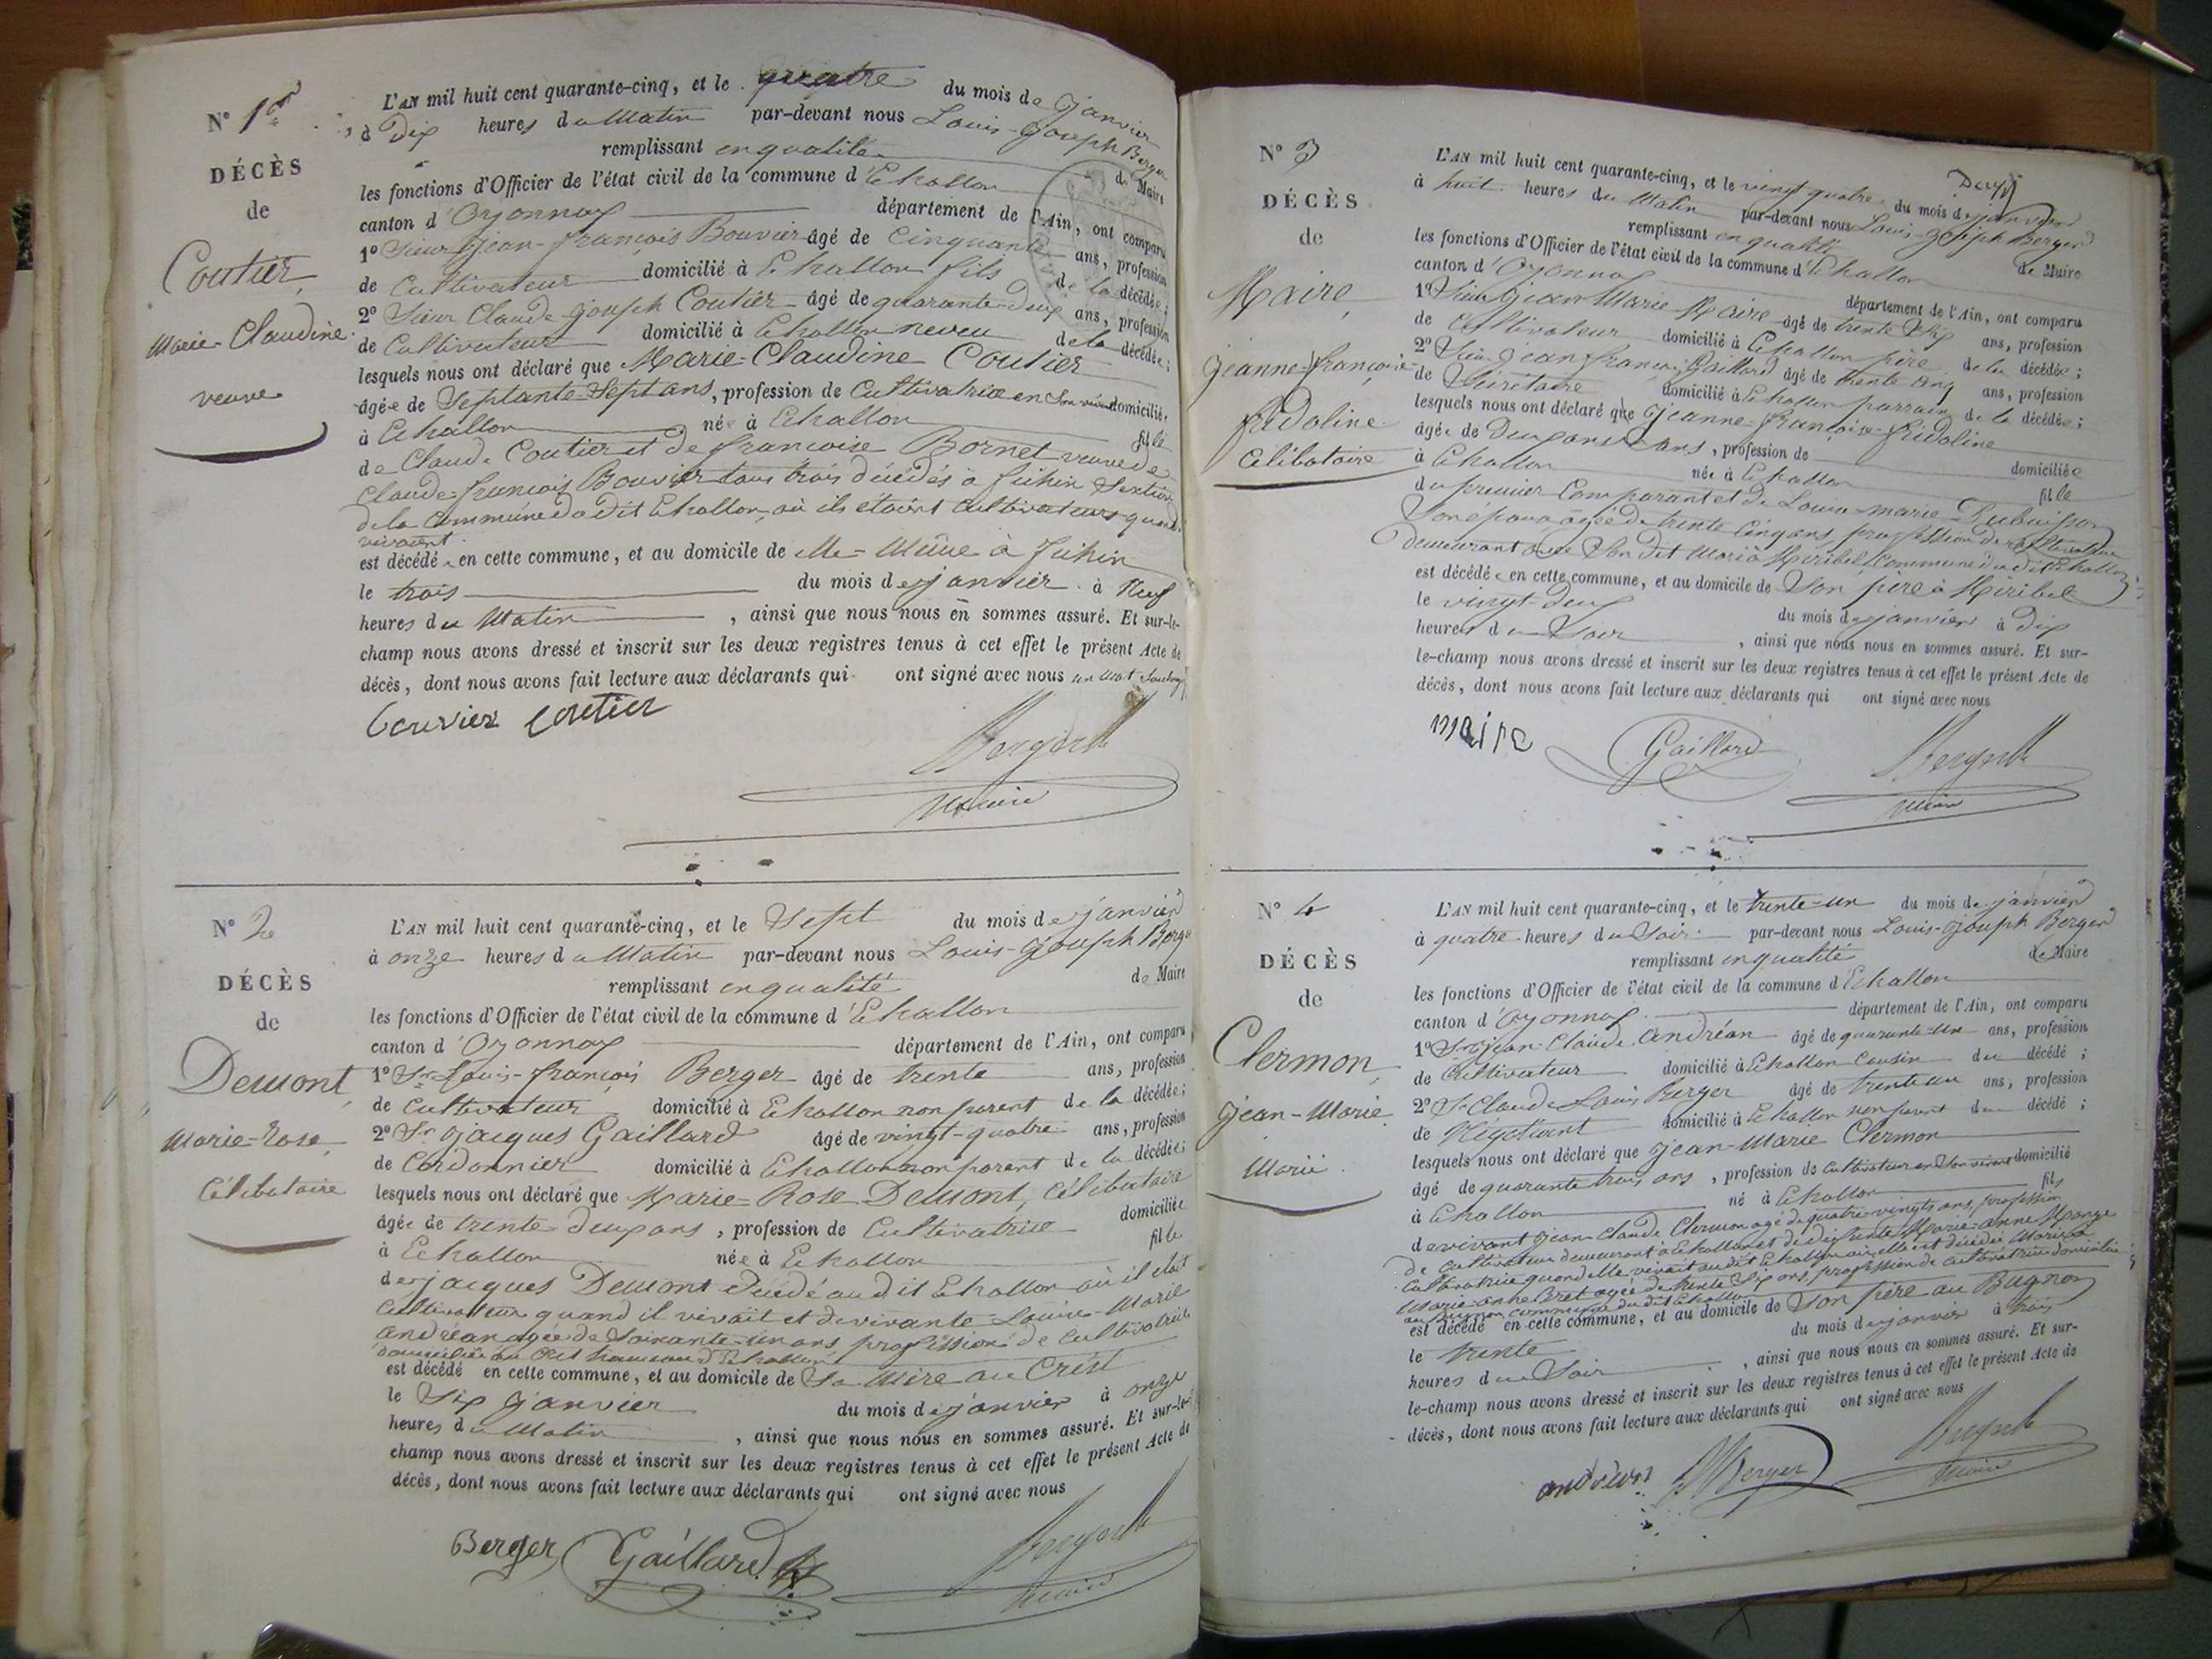 N° 1er
DÉCÈS
de
Coutier,
Marie-Claudine
veuve
L'AN mil huit cent quarante-cinq, et le quatre du mois de janvier
à Dix heures du Matin par-devant nous Louis-Joseph Berger
remplissant en qualité de Maire
les fonctions d'Officier de l'état civil de la commune d'Echallon
canton d'Oyonnax département de l'Ain, ont comparu
1° Sieur jean-françois Bouvier âgé de Cinquante ans, profession
de Cultivateur domicilié à Echallon fils de la décédée;
2° Sieur Claude-joseph Coutier âgé de quarante-deux ans, profession
de Cultivateur domicilié à Echallon neveu de la décédée;
lesquels nous ont déclaré que Marie-Claudine Coutier
âgée de Septante-Sept ans, profession de Cultivatrice en Son vivant domiciliée
à Echallon née à Echallon fille
de Claude Coutier et de françoise Bornet veuve de
Claude-françois Bouvier tous trois décédés à
de la Commune dudit Echallon, où ils étaient Cultivateurs quand ils
vivaient
est décédée en cette commune, et au domicile de elle-Même à
le trois du mois de janvier à Neuf
heures du Matin, ainsi que nous nous en sommes assuré. Et sur-le-
champ nous avons dressé et inscrit sur les deux registres tenus à cet effet le présent Acte de
décès, dont nous avons fait lecture aux déclarants qui ont signé avec nous un Mot
bouvier coutier
Berger
Maire
N° 2
DÉCÈS
de
Demont,
Marie-Rose,
Célibataire
L'AN mil huit cent quarante-cinq, et le Sept du mois de janvier
à onze heures du Matin par-devant nous Louis-Joseph Berger
remplissant en qualité de Maire
les fonctions d'Officier de l'état civil de la commune d'Echallon
canton d'Oyonnax département de l'Ain, ont comparu
1° Sr Louis-françois Berger âgé de trente ans, profession
de Cultivateur domicilié à Echallon non parent de la décédée;
2° Sr jacques Gaillard âgé de vingt-quatre ans, profession
de Cordonnier domicilié à Echallon non parent de la décédée;
lesquels nous ont déclaré que Marie-Rose Demont, Célibataire
âgée de trente-deux ans, profession de Cultivatrice domiciliée
à Echallon née à Echallon fille
de jacques Demont décédé audit Echallon où il était
Cultivateur quand il vivait et de vivante Louise-Marie
andréan agée de Soixante-un ans, profession de Cultivatrice
domiciliée au Crêt hameau d'Echallon
est décédé en cette commune, et au domicile de Sa Mère au Crêt
le Six janvier du mois de janvier à onze
heures du Matin, ainsi que nous nous en sommes assuré. Et sur-le-
champ nous avons dressé et inscrit sur les deux registres tenus à cet effet le présent Acte de
décès, dont nous avons fait lecture aux déclarants qui ont signé avec nous
Berger Gaillard Berger
Maire
N° 3
DÉCÈS
de
Maire,
jeanne-françoise
fridoline
Célibataire
L'AN mil huit cent quarante-cinq, et le vingt quatre du mois de janvier
à huit heures du Matin par-devant nous Louis-Joseph Berger
remplissant en qualité de Maire
les fonctions d'Officier de l'état civil de la commune d'Echallon
canton d'Oyonnax département de l'Ain, ont comparu
1° Sieur jean Marie Maire âgé de trente Six ans, profession
de Cultivateur domicilié à Echallon père de la décédée;
2° Sieur jean françois Gaillard âgé de trente cinq ans, profession
de Sécrétaire domicilié à Echallon parrain de la décédée;
lesquels nous ont déclaré que jeanne-françoise-fridoline
âgée de Deux ans, profession de domiciliée
à Echallon née à Echallon fille
du premier Comparant et de Louise-marie Dubuisson
Son épouse âgée de trente Cinq ans profession de cultivatrice
demeurant avec Son dit Mari à Miribel, Commune dudit Echallon
est décédée en cette commune, et au domicile de Son père à Miribel
le vingt-deux du mois de janvier à dix
heures du Soir, ainsi que nous nous en sommes assuré. Et sur-
le-champ nous avons dressé et inscrit sur les deux registres tenus à cet effet le présent Acte de
décès, dont nous avons fait lecture aux déclarants qui ont signé avec nous
maire Gaillard Berger
Maire
N° 4
DÉCÈS
de
Clermon,
jean-Marie
Marié
L'AN mil huit cent quarante-cinq, et le trente-un du mois de janvier
à quatre heures du Soir par-devant nous Louis-Joseph Berger
remplissant en qualité de Maire
les fonctions d'Officier de l'état civil de la commune d'Echallon
canton d'Oyonnax département de l'Ain, ont comparu
1° Sr jean Claude andréan âgé de quarante-un ans, profession
de Cultivateur domicilié à Echallon Cousin du décédé;
2° Sr Claude Louis Berger âgé de trente un ans, profession
de Négotiant domicilié à Echallon non parent du décédé;
lesquels nous ont déclaré que jean-Marie Clermon
âgé de quarante trois ans, profession de Cultivateur en Son vivant domicilié
à Echallon né à Echallon fils
de vivant jean Claude Clermon agé de quatre-vingts ans, profession
de Cultivateur demeurant à Echallon et de défunte Marie-anne
Cultivatrice quand elle vivait audit Echallon où elle est décédée Marié à
Marie-anne Bret agée de trente Six ans, profession de cultivatrice domiciliée
au Bugnon commune dudit Echallon
est décédé en cette commune, et au domicile de Son père au Bugnon
le trente du mois de janvier à trois
heures du Soir, ainsi que nous nous en sommes assuré. Et sur-
le-champ nous avons dressé et inscrit sur les deux registres tenus à cet effet le présent Acte de
décès, dont nous avons fait lecture aux déclarants qui ont signé avec nous
andréan Berger Berger
Maire